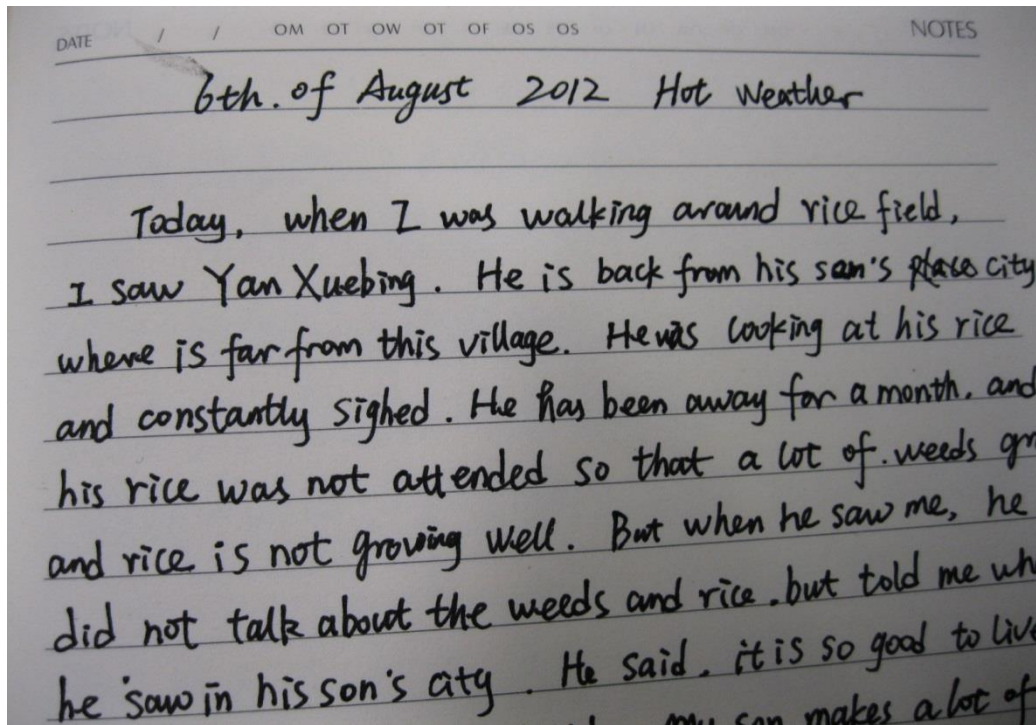 DATE / / OM OT OW OT OF OS OS NOTES
6th. of August 2012 Hot Weather
Today, when I was walking around rice field,
I saw Yan Xuebing. He is back from his son's city
where is far from this village. He was looking at his rice
and constantly sighed. He has been away for a month. and
his rice was not attended so that a lot of. weeds
and rice is not growing well. But when he saw me, he
did not talk about the weeds and rice. but told me
he saw in his son's city. He said. it is so good to
my son makes a lot of